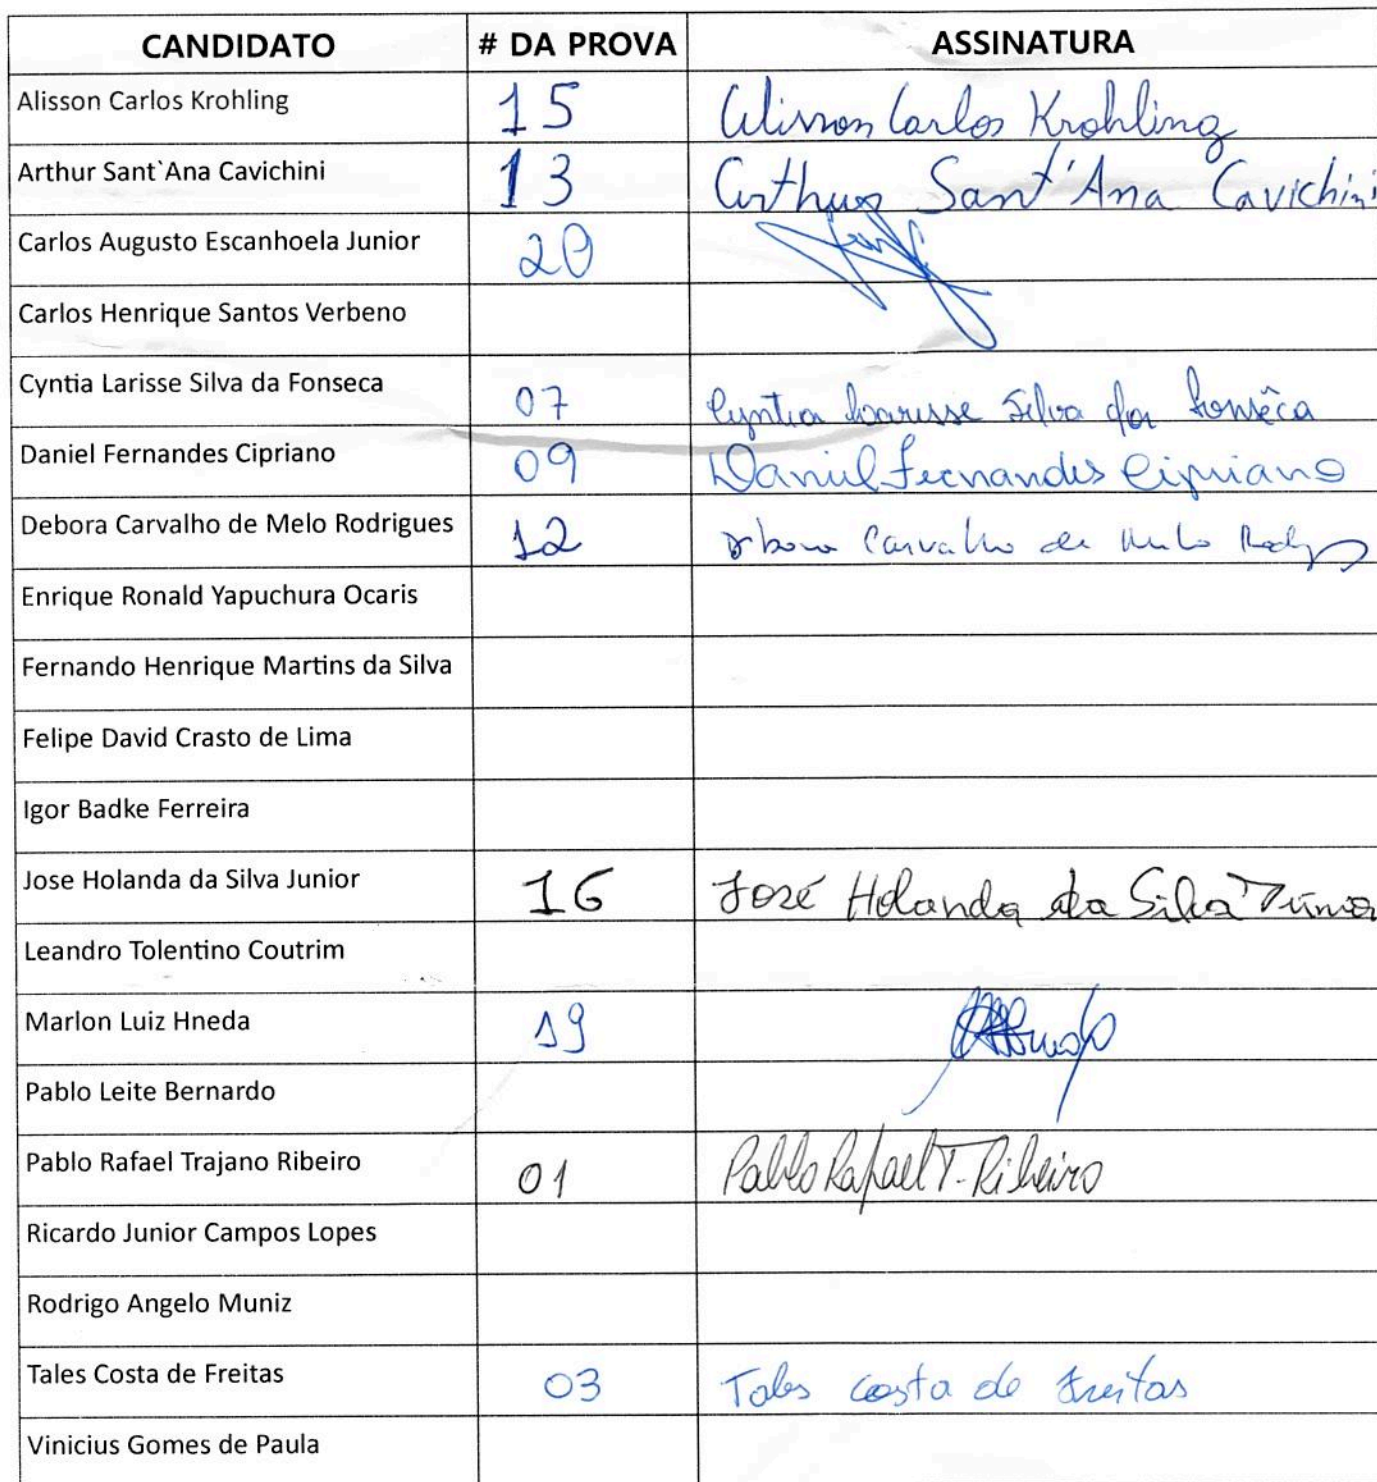 CANDIDATO # DA PROVA ASSINATURA
Alisson Carlos Krohling 15 Alisson Carlos Krohling
Arthur Sant`Ana Cavichini 13 Arthur Sant'Ana Cavichini
Carlos Augusto Escanhoela Junior 20
Carlos Henrique Santos Verbeno
Cyntia Larisse Silva da Fonseca 07 Cyntia Larisse Silva da Fonsêca
Daniel Fernandes Cipriano 09 Daniel Fernandes Cipriano
Debora Carvalho de Melo Rodrigues 12 Debora Carvalho de Melo
Enrique Ronald Yapuchura Ocaris
Fernando Henrique Martins da Silva
Felipe David Crasto de Lima
Igor Badke Ferreira
Jose Holanda da Silva Junior 16 José Holanda da Silva Júnior
Leandro Tolentino Coutrim
Marlon Luiz Hneda 19
Pablo Leite Bernardo
Pablo Rafael Trajano Ribeiro 01 Pablo Rafael T. Ribeiro
Ricardo Junior Campos Lopes
Rodrigo Angelo Muniz
Tales Costa de Freitas 03 Tales Costa de Freitas
Vinicius Gomes de Paula